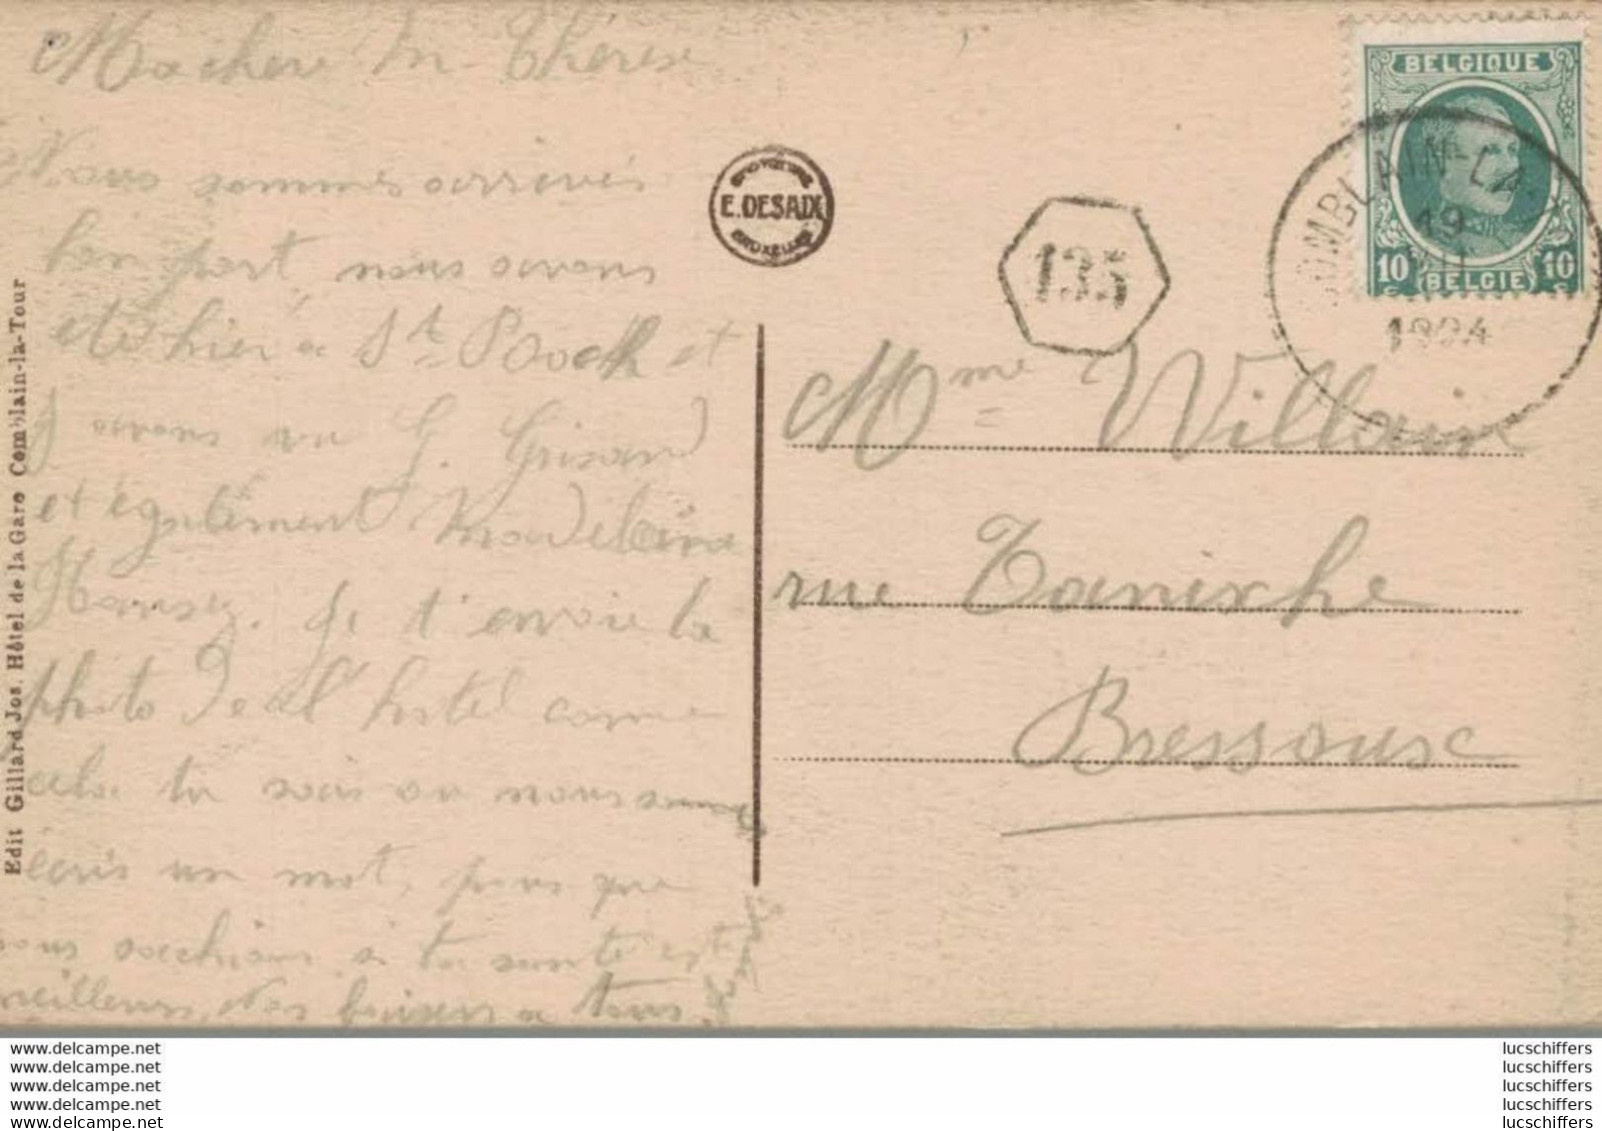 Ma chère M. Thérèse
Nous sommes arrivés
bon port, nous avons
été hier à St Roch et
J avons vu G. Grisard
et également Madeleine
Hansez. Je t'envoie la
photo de l'hotel comme
cela tu sais ou nous sommes
écris un mot, pour que
nous sachions si ta santé est
meilleure, Nos baisers a tous
Edit Gillard Jos. Hôtel de la Gare Comblain-la-Tour
E. DESAIX
BRUXELLES
135
BELGIQUE
10 BELGIE 10
COMBLAIN-LA-
19
1924
Mme Villain
rue Tanixhe
Bressoux
www.delcampe.net
www.delcampe.net
www.delcampe.net
www.delcampe.net
www.delcampe.net
lucschiffers
lucschiffers
lucschiffers
lucschiffers
lucschiffers